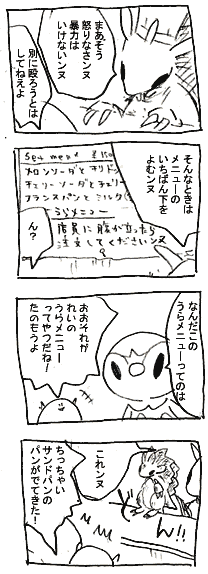 まあそう
怒りなさンヌ
暴力は
いけないンヌ
別に殴ろうとは
してねえよ
そんなときは
メニューの
いちばん下を
よむンヌ
Set menu
メロンソーダとチリドッ
チェリーソーダとチェリー
フランスパンとミルク
うらメニュー
店員に腹が立ったら
注文してくださいンヌ
ん?
なんだこの
うらメニューってのは
?
おおそれが
れいの
うらメニュー
ってやつだね!
たのもうよ
これンヌ
ん!!
ちっちゃい
サンドパンの
パンがでてきた!